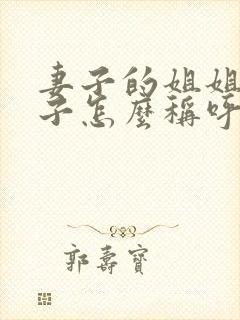 妻子的姐姐
子怎麼稱呼
郭壽寶